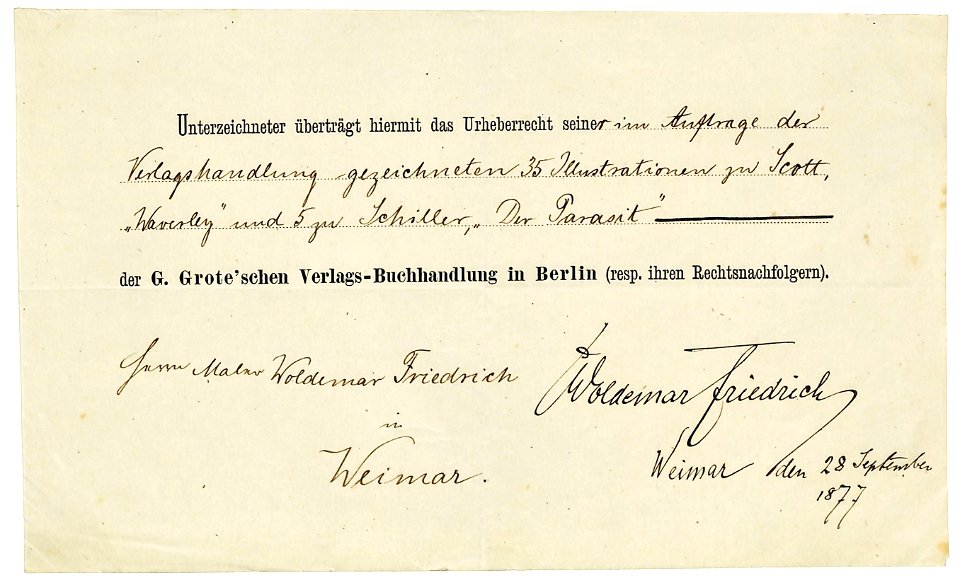 Unterzeichneter überträgt hiermit das Urheberrecht seiner im Auftrage der
Verlagshandlung gezeichneten 35 Illustrationen zu Scott,
„Waverley" und 5 zu Schiller, „Der Parasit"
der G. Grote'schen Verlags-Buchhandlung in Berlin (resp. ihren Rechtsnachfolgern).
Herrn Maler Woldemar Friedrich
in
Weimar.
Woldemar Friedrich
Weimar den 28 September
1877